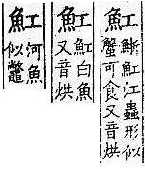 魟
魟江蟲形似
蟹可食又音烘
魟
魟白魚
又音烘
魟
河魚
似鼈